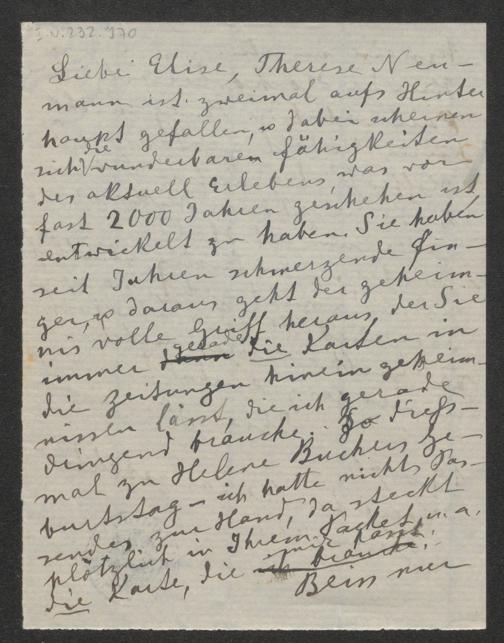 I.N. 232.970
Liebe Elise, Therese Neu-
mann ist zweimal aufs Hinter
haupt gefallen, u dabei scheinen
sich die wunderbaren Fähigkeiten
des aktuell Erlebens, was vor
fast 2000 Jahren geschehen ist
entwickelt zu haben. Sie haben
seit Jahren schmerzende Fin-
ger, u daraus geht der geheim-
nis volle Griff heraus, der Sie
immer gerade die Karten in
die Zeitungen hinein geheim-
nissen lässt, die ich gerade
dringend brauche. So dies-
mal zu Helene Buchers Ge-
burtstag – ich hatte nichts Pas-
sendes zur Hand, da steckt
plötzlich in Ihrem Packet, u. a.
die Karte, die mir passt.
ich brauche.
Beim nur